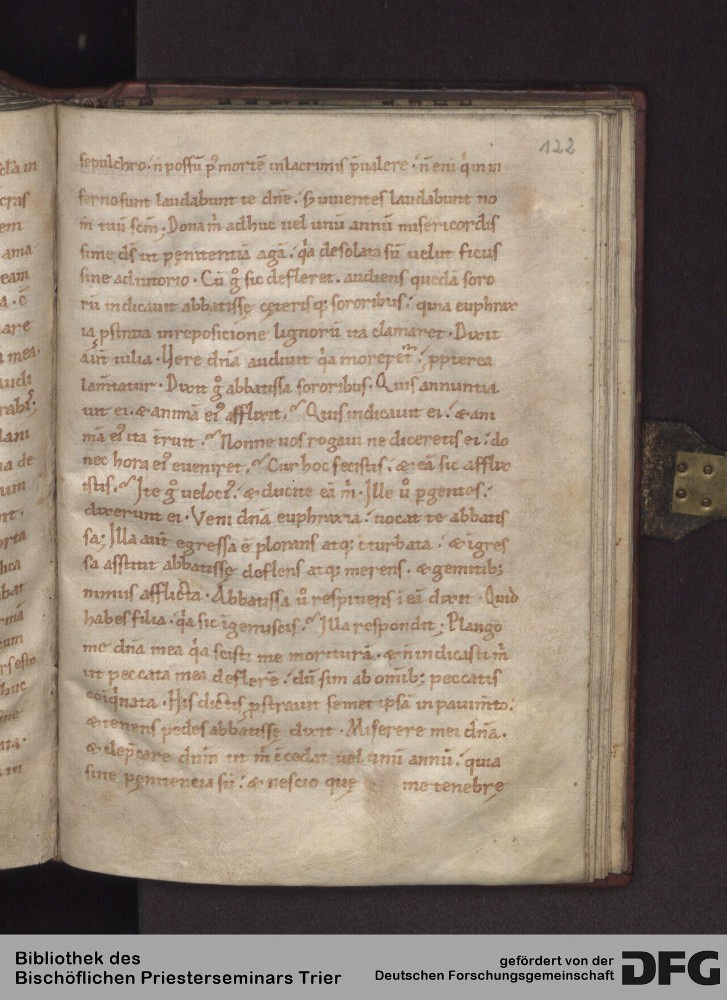 122
sepulchro. n̄ possū p' mortē in lacrimis p̄ualere. n̄ eni q̇ in in
ferno sunt laudabunt te dn̄e. s; uiuentes laudabunt no
m̄ tuū sc̄m; Dona m̄ adhuc uel unū annū misericordis
sime ds̄ ut penitentiā agā. q̇a desolata sū uelut ficus
sine adiutorio. Cū g̊ sic defleret. audiens quedā soro
rū indicauit abbatissę cęteris q; sororibus. quia euphrax
ia pstrata in reposicione lignorū ita clamaret. Dixit
aūt iulia. Here dn̄a audiuit q̇a moreret. ppterea
lam̄tatur. Dixit g̊ abbatissa sororibus. Quis annuntia
uit ei. & animā ei' afflixit. Quis indicauit ei. & ani
mā ei' ita t̄ruit. Nonne uos rogaui ne diceretis ei. do
nec hora ei' eueniret. Cur hoc fecistis. & eā sic afflix
istis. Ite g̊ veloci'. & ducite eā m̄. Ille ů pgentes.
dixerunt ei. Veni dn̄a euphraxia. uocat te abbatis
sa; Illa aūt egressa ē plorans atq; cturbata. & īgres
sa astitit abbatissę deflens atq; merens. & gemitib;
nimis afflicta. Abbatissa ů respiciens ī eā dixit. Quid
habes filia. q̇a sic īgemiscis. Illa respondit; Plango
me dn̄a mea q̇a scisti me moriturā. & n̄ indicasti m̄
ut peccata mea deflere. dū sim ab omīb; peccatis
coīq̇nata. His dictis pstrauit semet ipsā in pauim̄to.
& tenens pedes abbatissę dixit. Miserere mei dn̄a.
& dep̄care dn̄m ut m̄ c̄cedat uel unū annū. quia
sine penitencia sū. & nescio quę me tenebrę
Bibliothek des
Bischöflichen Priesterseminars Trier
gefördert von der
Deutschen Forschungsgemeinschaft
DFG